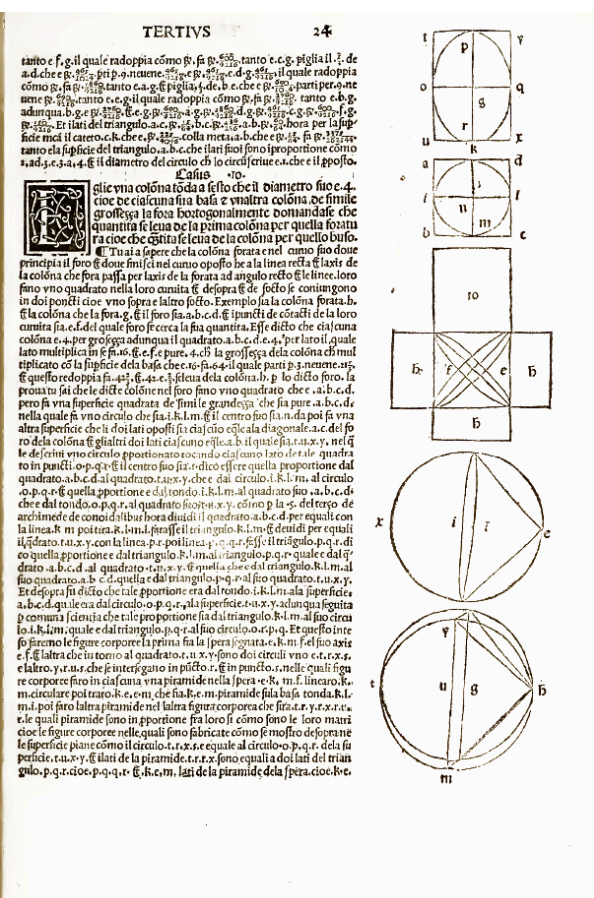 TERTIVS 24
tanto e.f.g.il quale radoppia cōmo tanto e.c.g. piglia
a.d.che e e.d.g. il quale radoppia
cōmo tanto e.a.g. piglia b e.che e parti per.9.ne
uene tanto.e.e.g.il quale radoppia cōmo tanto e.b.g.
adunqua.b.g.e
Et ilati del triangulo.a.c. b.c. a.b. hora per la sup
ficie mcā il cateto.c.k.che e colla meta.a.b.che e
tanto ela supficie del triangulo.a.b.c.che ilati suoi sono iproportione cōmo
ad.3.e.3.a.4. il diametro del circulo ch lo circūscriue e.1.che e il pposto.
Casus .10.
glie vna colōna tōda a sesto che il diametro suo e.4.
cioe de ciascuna sua basa e vnaltra colōna de simile
grossezza la fora hortogonalmente domandase che
quantita se leua de la prima colōna per quella foratu
ra cioe che qtita se leua de la colōna per quello buso.
Tu ai a sapere che la colōna forata e nel curuo suo doue
principia il foro doue finisci nel curuo oposto he a la linea recta laxis de
la colōna che fora passa per laxis de la forata ad angulo recto le linee.loro
fano vno quadrato nella loro curuita desopra de socto se coniungono
in doi pōncti cioe vno sopra e laltro socto. Exemplo sia la colōna forata.h.
la colōna che la fora.g. il foro sia.a.b.c.d. ipuncti de cōtacti de la loro
curuita sia.e.f.del quale foro se cerca la sua quantita. Esse dicto che ciascuna
colōna e.4.per grossezza adunqua il quadrato.a.b.c.d.e.4.per lato il quale
lato multiplica in se fa.16. e.f.e pure.4.ch la grossezza de la colōna ch mul
tiplicato cō la supficie dela basa che e.16.fa.64.il quale parti p.3.neuene.21⅓.
questo redoppia fa.42⅔. 42.e.⅔.seleua dela colōna.h. p lo dicto foro. la
proua tu sai che le dicte colōne nel foro fano vno quadrato che e.a.b.c.d.
pero fa vna superficie quadrata de simile grandezza che sia pure.a.b.c.d.
nella quale fa vno circulo che sia.i.k.l.m. il centro suo sia.n.da poi fa vna
altra superficie che li doi lati oposti sia ciascūo eqle ala diagonale.a.c.del fo
ro dela colōna glialtri doi lati ciascuno eqle.a.b.il quale sia.t.u.x.y. nel q
le descriui vno circulo pportionato tocando ciascuno lato de tale quadra
to in puncti.o.p.q.r. il centro suo sia.s.dico essere quella proportione dal
quadrato.a.b.c.d.al quadrato.t.u.x.y.che e dal circulo.i.k.l.m. al circulo
.o.p.q.r. quella pportione e dal tondo.i.k.l.m.al quadrato suo.a.b.c.d.
che e dal tondo.o.p.q.r. al quadrato suo.t.u.x.y. cōmo p la.5. del terço de
archimede de conoidalibus hora diuidi il quadrato.a.b.c.d.per equali con
la linea.k m poi tira.k.l.m.l.farasse il triangulo.k.l.m. deuidi per equali
il qdrato.t.u.x.y.con la linea.p.r.poi linea.p.q.q.r.fasse il triāgulo.p.q.r.di
co quella pportione e dal triangulo.k.l.m.al triangulo.p.q.r.quale e dal q
drato .a.b.c.d .al quadrato .t.u.x.y. quella che e dal triangulo.k.l.m.al
suo quadrato.a.b c.d.quella e dal triangulo.p.q.r.al suo quadrato.t.u.x.y.
Et desopra fu dicto che tale pportione era dal tondo.i.k.l.m.ala superficie.
a.b.c.d.quale era dal circulo.o.p.q.r.ala superficie.t.u.x.y.adunqua seguita
p comuna sciencia che tale proportione sia dal triangulo.k.l.m.al suo circu
lo.i.k.l.m.quale e dal triangulo.p.q.r.al suo circulo.o.r.p.q. Et questo inte
so faremo le figure corporee la prima fia la spera segnata.e.k.m.f.el suo axis
e.f. laltra che in torno al quadrato.t.u x.y.sono doi circuli vno e.t.r.x.s.
e laltro.y.r.u.s.che se intersegano in pūcto.r. in puncto.s.nelle quali figu
re corporee faro in ciascuna vna piramide nella spera.e.k. m.f. linearo.k.
m.circulare poi traro.k.e.e.m.che fia.k.e.m.piramide sula basa tonda.k.l.
m.i.poi faro laltra piramide nel laltra figura corporea che sira.t.r.y.r.x.r.u.
r.le quali piramide sono in pportione fra loro si cōmo sono le loro matri
cioe le figure corporee nelle quali sono fabricate cōmo se mostro desopra ne
le superficie piane cōmo il circulo.t.r.x.s.e equale al circulo.o.p.q.r. dela su
perficie.t.u.x.y. ilati de la piramide.t.r.r.x.sono equali a doi lati del trian
gulo.p.q.r.cioe.p.q.q.r. k.e.m. lati de la piramide dela spera.cioe.k.e.
t y
p
o q
s
r
u k x
a d
i l
n m
b c
10
h f e h
h
x i e
t u g h
m